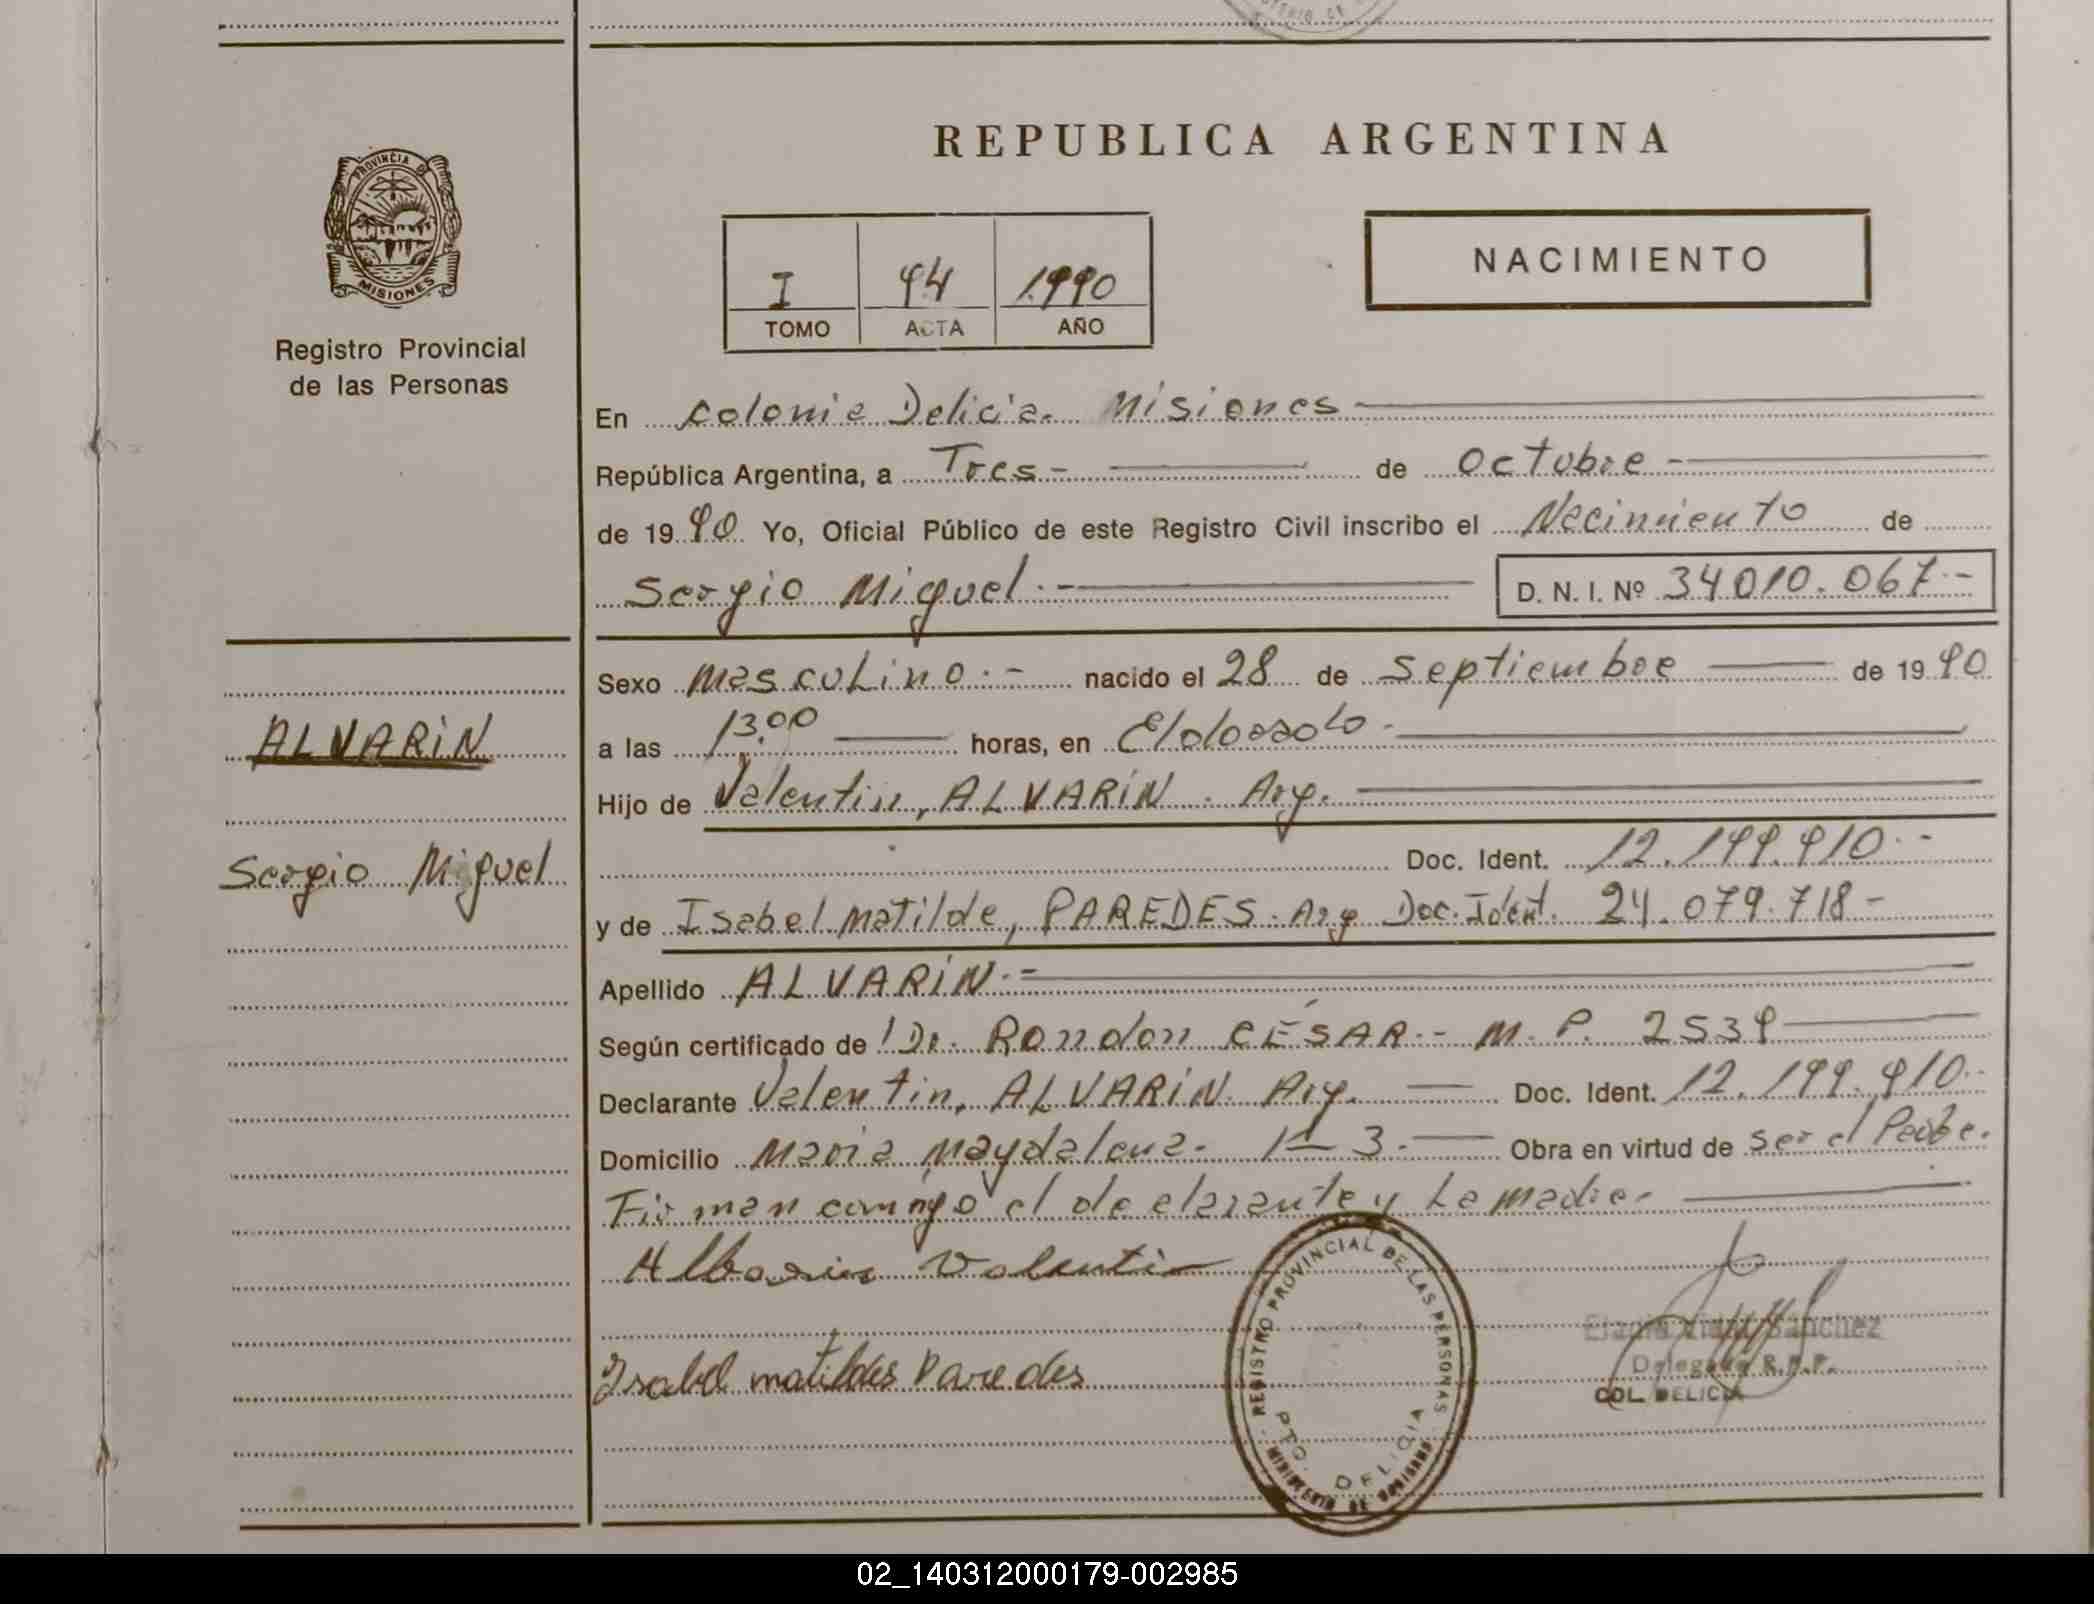 REPUBLICA ARGENTINA
PROVINCIA DE
MISIONES
Registro Provincial
de las Personas
I 94 1990
TOMO ACTA AÑO
NACIMIENTO
En Colonia Delicia. Misiones
República Argentina, a Tres.- de Octubre -
de 1990 Yo, Oficial Público de este Registro Civil inscribo el Nacimiento de
Sergio Miguel.- D. N. I. Nº 34010.067.-
Sexo Masculino.- nacido el 28 de Septiembre de 1990
a las 13,00 horas, en Eldorado.-
Hijo de Valentin, ALVARIN. Arg.
Doc. Ident. 12.199.910.-
y de Isabel Matilde, PAREDES. Arg Doc. Ident. 24.079.718-
Apellido ALVARIN.-
Según certificado de Dr. Rondon CÉSAR.- M. P. 2539
Declarante Valentin, ALVARIN. Arg. Doc. Ident. 12.199.910.-
Domicilio Maria Magdalena. 3. Obra en virtud de ser el Padre.
Firman conmigo el declarante y La madre.
Albarin Valentin
Isabel matildes Paredes
ALVARIN
Sergio Miguel
REGISTRO PROVINCIAL DE LAS PERSONAS
MINISTERIO DE GOBIERNO
DELICIA
Sanchez
Delegada R.P.P.
COL. DELICIA
02_140312000179-002985